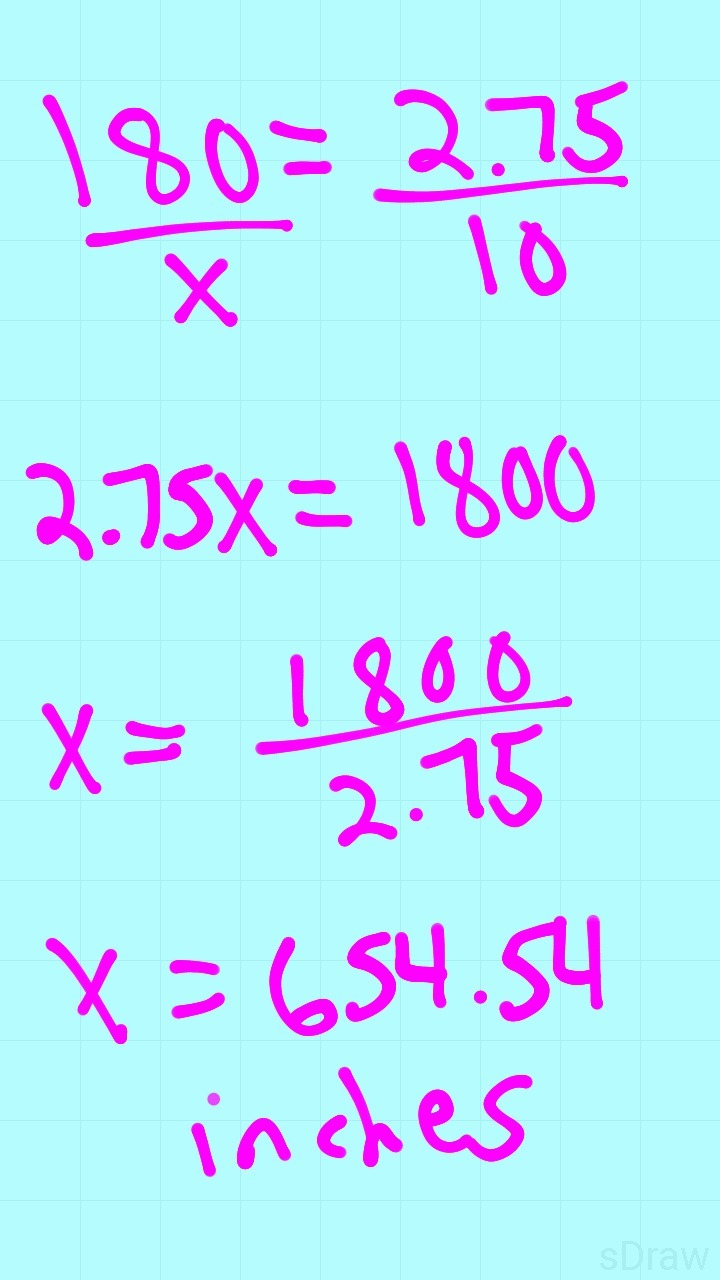 180 = 2.75
x 10
2.75x = 1800
x = 1800
2.75
x = 654.54
inches
sDraw